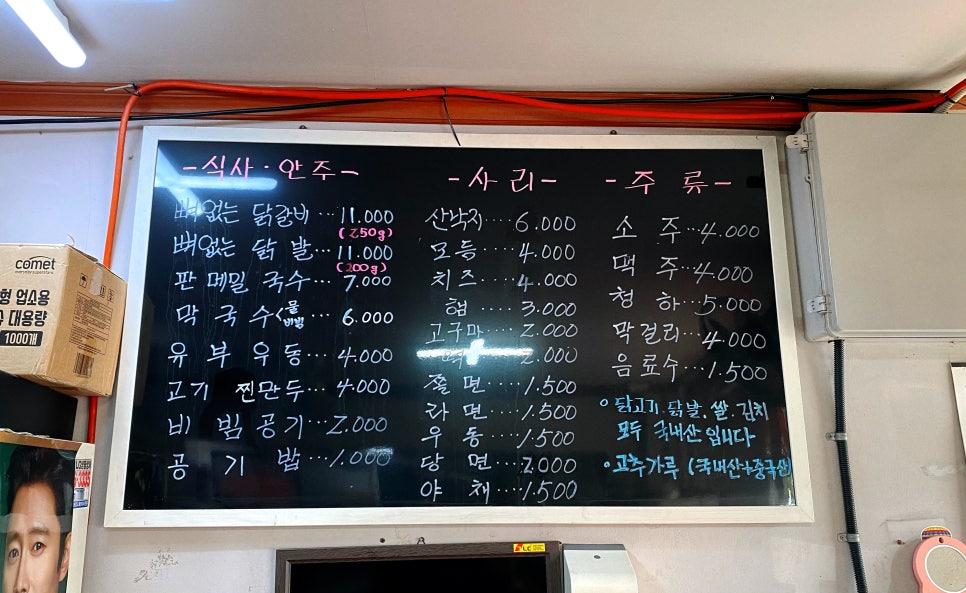 -식사·안주-
뼈없는 닭갈비 ··· 11.000
(250g)
뼈없는 닭 발 ··· 11.000
(200g)
판 메밀 국수 ··· 7.000
막 국수 <물 비빔 6.000
유 부 우 동 ··· 4.000
고기 찐만두 ··· 4.000
비 빔 공기 ··· 2.000
공 기 밥 ··· 1.000
-사 리-
산낙지 ···· 6.000
모듬 ···· 4.000
치즈 ···· 4.000
햄 ···· 3.000
고구마 ··· 2.000
2.000
쫄 면 ···· 1.500
라 면 ···· 1.500
우 동 ···· 1.500
당 면 ···· 2.000
야 채 ···· 1.500
-주 류-
소 주 ··· 4.000
맥 주 ··· 4.000
청 하 ··· 5.000
막걸리 ··· 4.000
음료수 ··· 1.500
◦ 닭고기. 닭발. 쌀. 김치
모두 국내산 입니다
◦ 고추가루 (국내산+중국산
comet
형 업소용
대용량
1000개